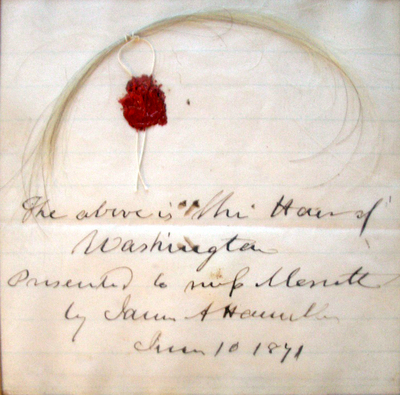 The above is the Hair of
Washington
Presented to
by James A Hamilton
June 10 1871